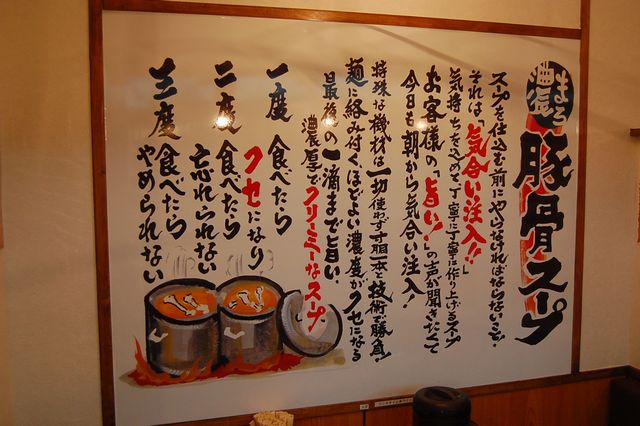 まろ濃
豚骨スープ
スープを仕込む前にやらなければならないこと。
それは「気合い注入!!」
気持ちを込めて丁寧に丁寧に作り上げるスープ
お客様の「旨い!」の声が聞きたくて
今日も朝から気合い注入!
特殊な機材は一切使わず寸胴一本で技術で勝負!
麺に絡み付く、ほどよい濃度がクセになる
最後の一滴まで旨い、
濃厚でクリーミーなスープ
一度食べたら
クセになり、
二度食べたら
忘れられない
三度食べたら
やめられない